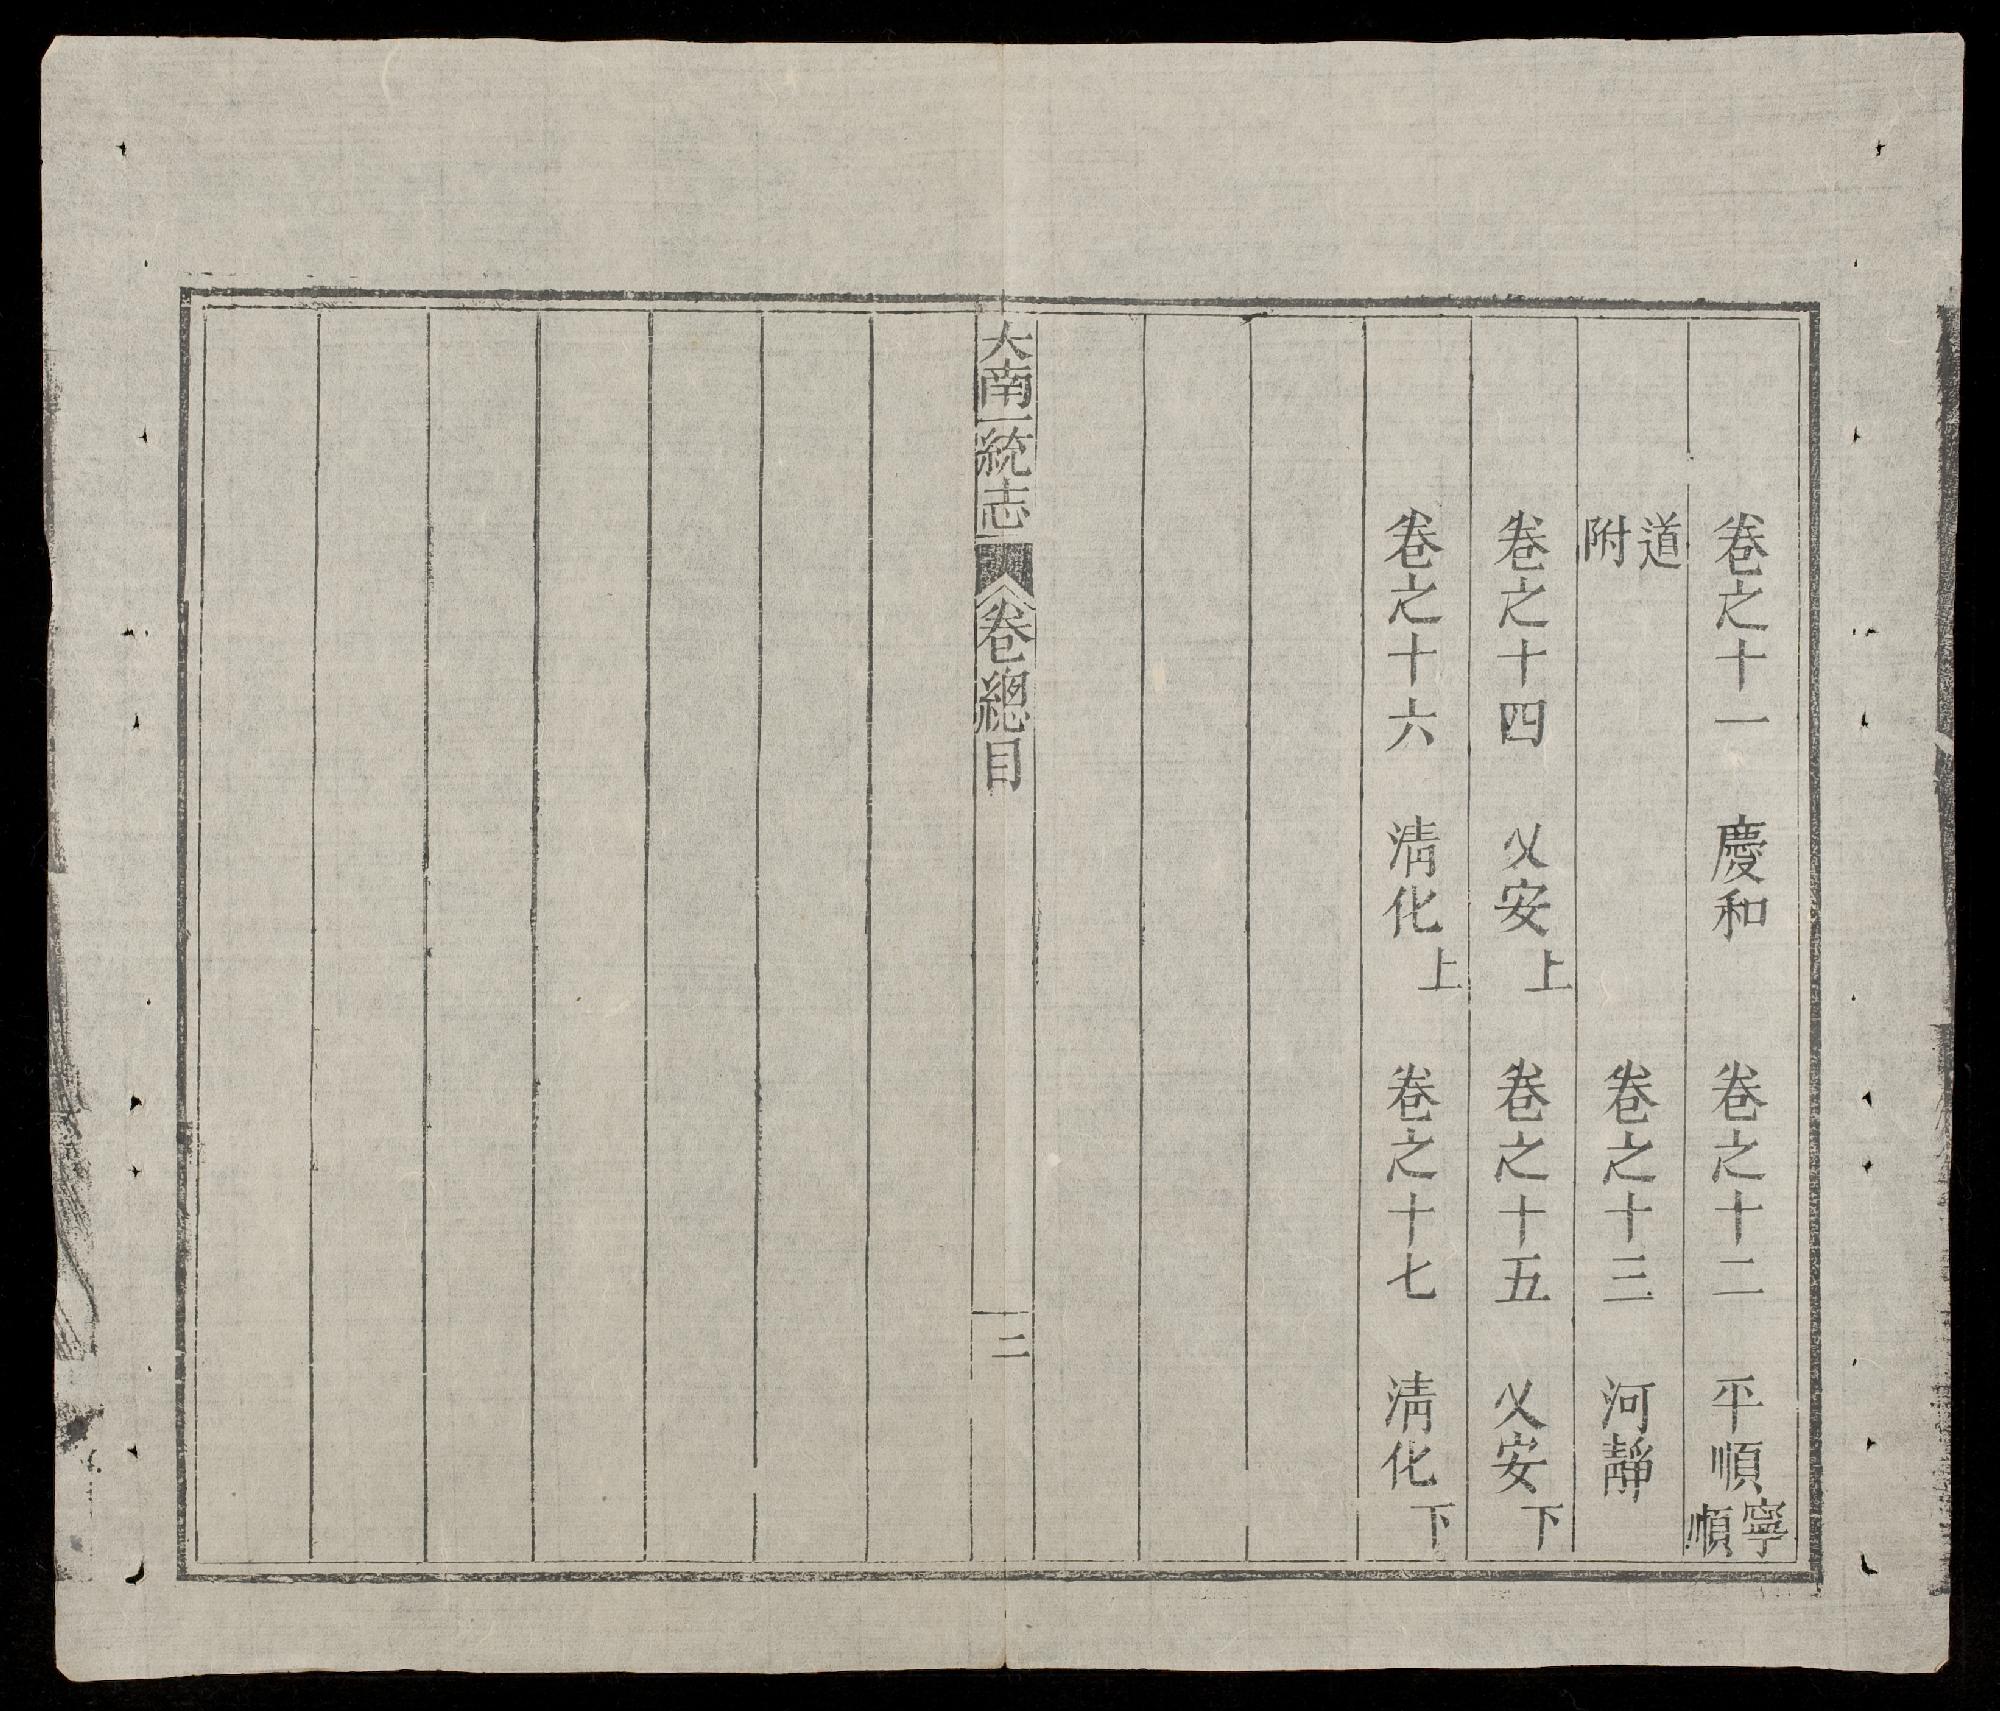 卷之十一　慶和　卷之十二　平順寧順
道附　卷之十三　河靜
卷之十四　乂安上　卷之十五　乂安下
卷之十六　淸化上　卷之十七　淸化下
大南一統志　卷總目　二